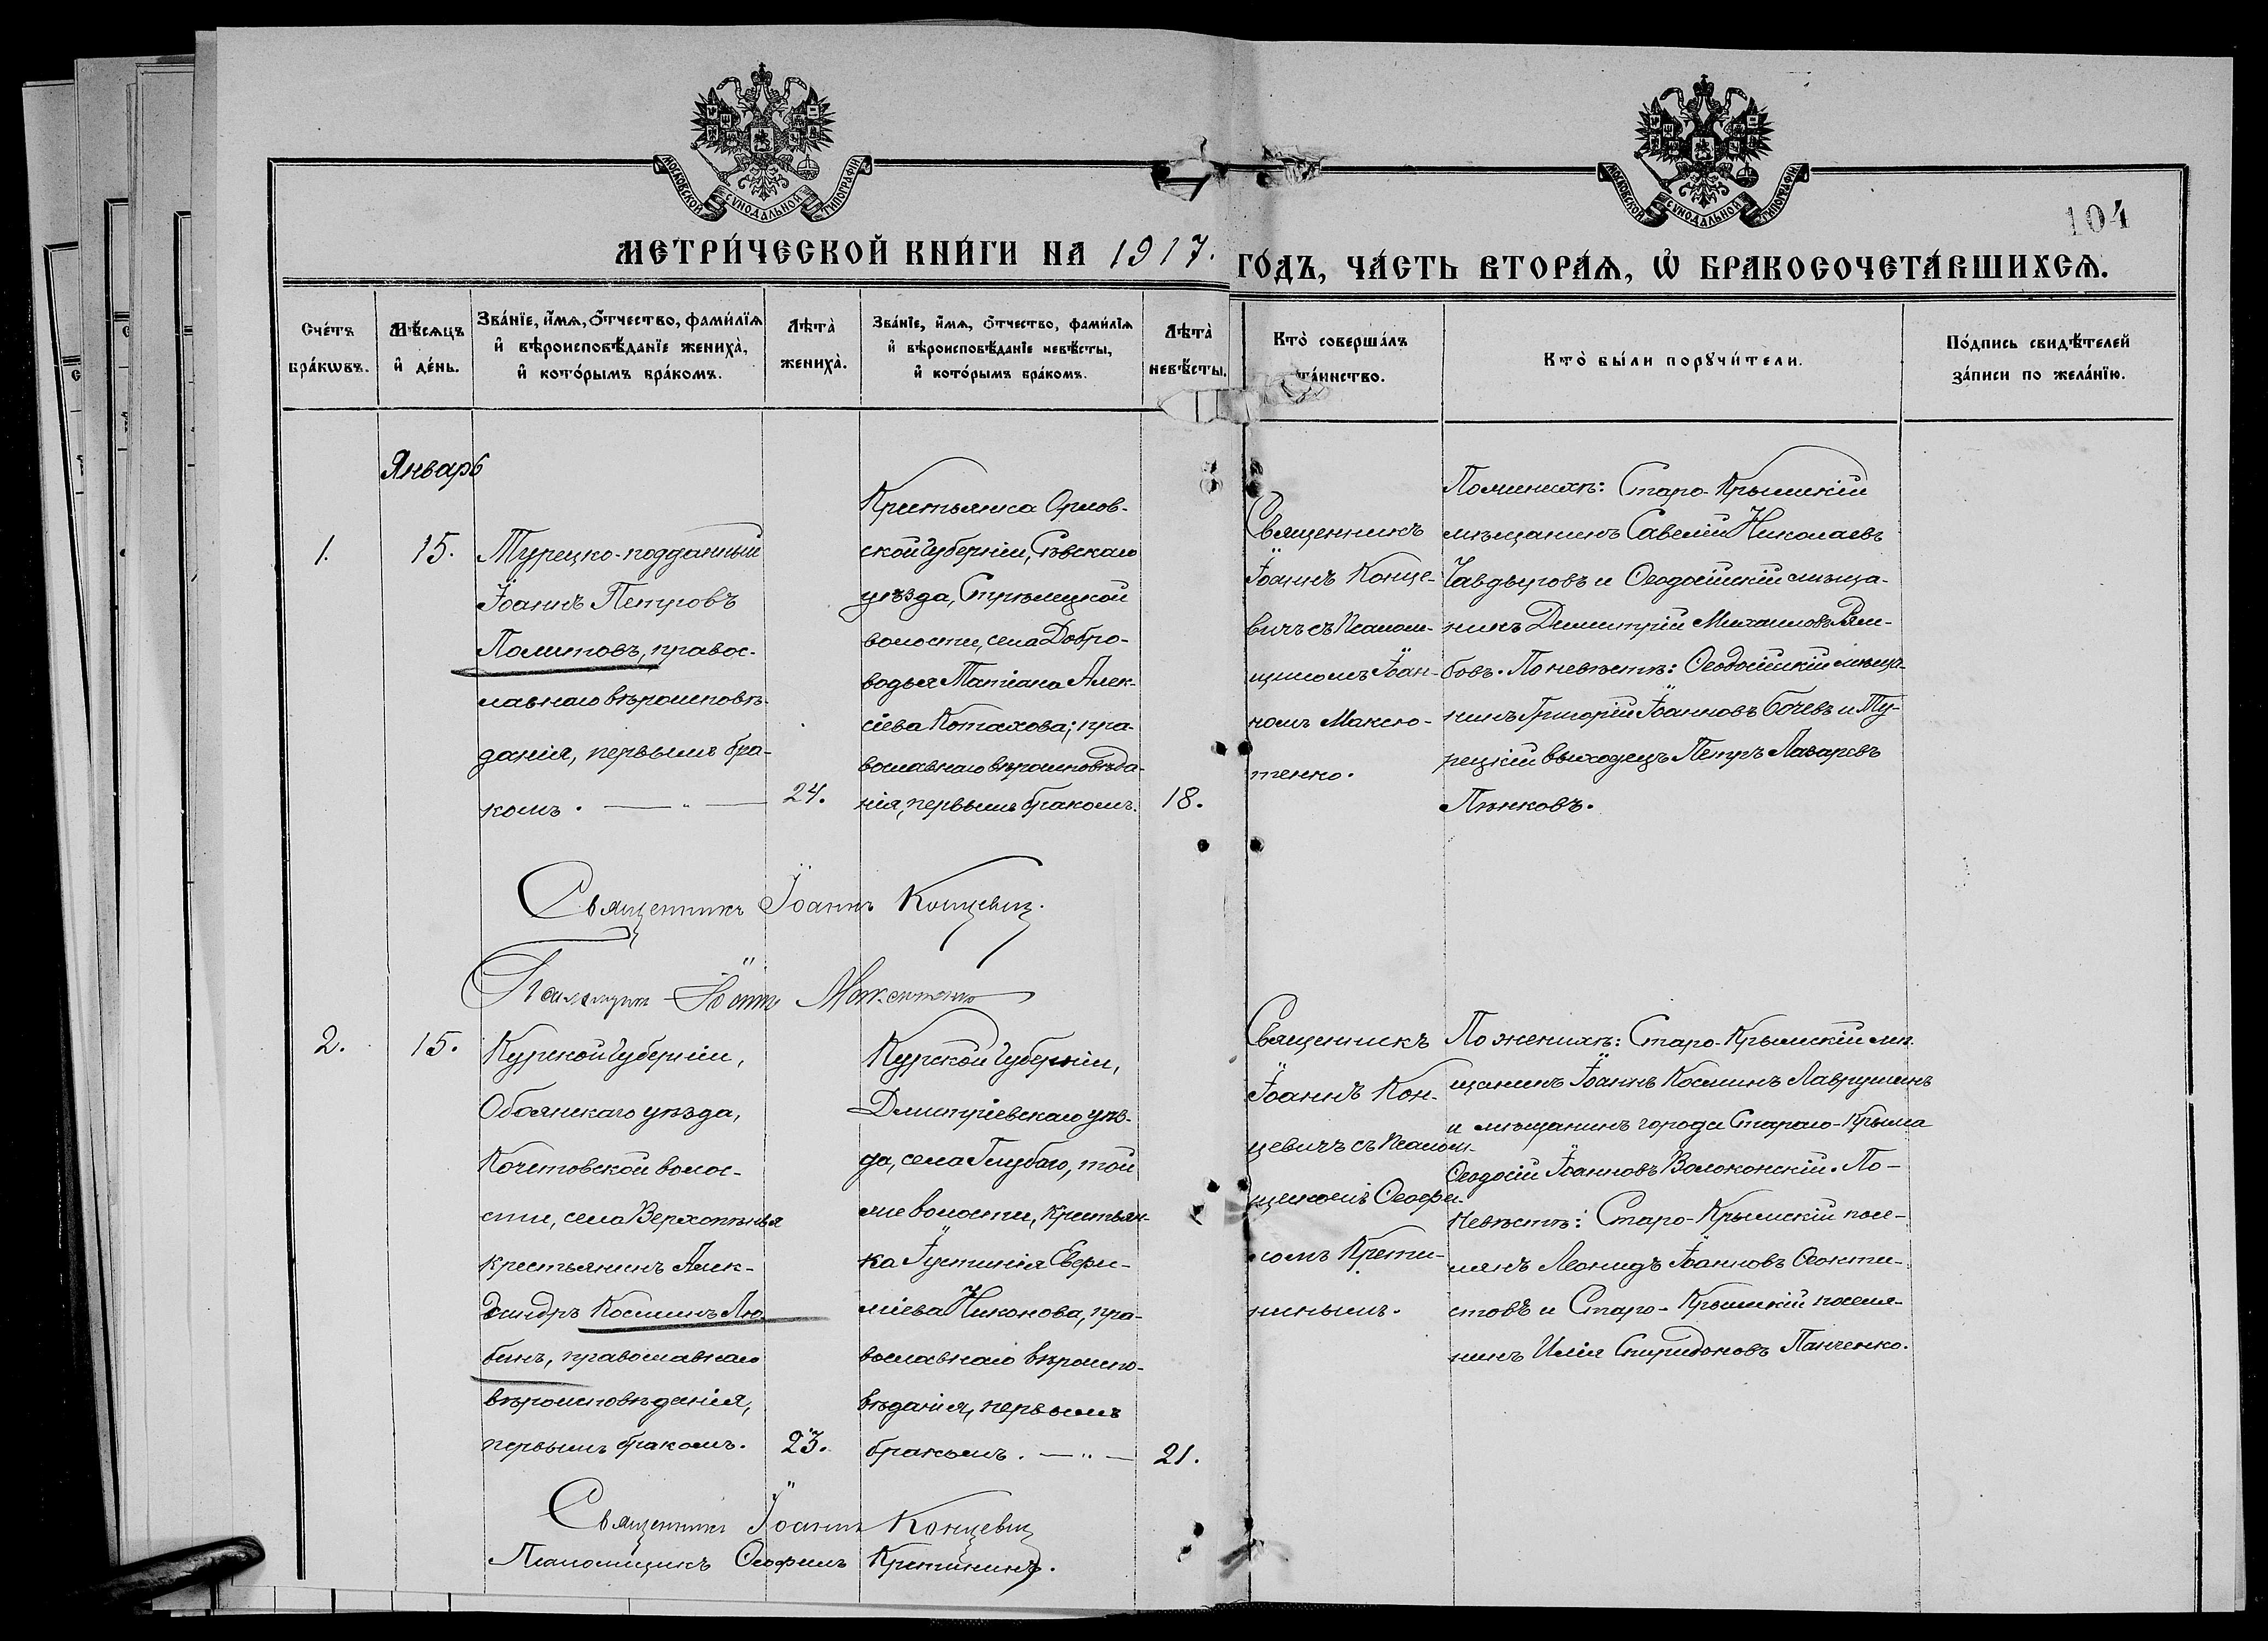 МОСКОВСКОЙ СѴНОДАЛЬНОЙ ТИПОГРАФІИ
МОСКОВСКОЙ СѴНОДАЛЬНОЙ ТИПОГРАФІИ
104
МЕТРИ́ЧЕСКОЙ КНИ́ГИ НА 1917. ГО́ДЪ, ЧА́СТЬ ВТОРА́Ѧ, Ѽ БРАКОСОЧЕТА́ВШИХСѦ.
Сче́тъ
бра́кѡвъ.
Мѣ́сѧцъ
и҆ де́нь.
Зва́нїе, и҆́мѧ, ѻ҆́тчество, фами́лїѧ
и҆ вѣроисповѣ́данїе жениха̀,
и҆ кото́рымъ бра́комъ.
Лѣта̀
жениха̀.
Зва́нїе, и҆́мѧ, ѻ҆́тчество, фами́лїѧ
и҆ вѣроисповѣ́данїе невѣ́сты,
и҆ кото́рымъ бра́комъ.
Лѣта̀
невѣ́сты.
Кто̀ соверша́лъ
та́инство.
Кто̀ бы́ли порꙋчи́тели.
По́дпись свидѣ́телей
за́писи по жела́нїю.
Январь
1.
15.
Турецко-подданный
Іоаннъ Петровъ
Политовъ, правос-
лавнаго вѣроисповѣ-
данія, первымъ бра-
комъ.
24.
Крестьянка Орлов-
ской губерніи, Сѣвскаго
уѣзда, Стрѣлецкой
волости, села Добро-
водья Татіана Алек-
сіева Котахова; пра-
вославнаго вѣроисповѣда-
нія, первымъ бракомъ.
18.
Священникъ
Іоаннъ Конце-
вичъ съ Псалом-
щикомъ Іоан-
номъ Максю-
тенко.
По женихѣ: Старо-Крымскій
мѣщанинъ Савелій Николаевъ
Чавдыровъ и Ѳеодосійскій мѣща-
нинъ Димитрій Михаиловъ
бовъ. По невѣстѣ: Ѳеодосійскій мѣща-
нинъ Григорій Іоанновъ Бочевъ и Ту-
рецкій выходецъ Петръ Лазаревъ
Пѣнковъ.
Священникъ Іоаннъ Концевичъ.
Псаломщикъ Іоаннъ Максютенко
2.
15.
Курской губерніи,
Обоянскаго уѣзда,
Кочетовской волос-
сти, села Верхопѣнья
крестьянинъ Алек-
сандръ Косминъ Лю-
бинъ, православнаго
вѣроисповѣданія,
первымъ бракомъ.
23.
Курской губерніи,
Дмитріевскаго уѣз-
да, села Глубаго, той
же волости, крестьян-
ка Іустинія Евфи-
міева Никонова, пра-
вославнаго вѣроиспо-
вѣданія, первымъ
бракомъ.
21.
Священникъ
Іоаннъ Кон-
цевичъ съ Псалом-
щикомъ Ѳеофи-
ломъ Крети-
нинымъ.
По женихѣ: Старо-Крымскій мѣ-
щанинъ Іоаннъ Косминъ Лаврушинъ
и мѣщанинъ города Стараго-Крыма
Ѳеодосій Іоанновъ Волоконскій. По-
невѣстѣ: Старо-Крымскій посе-
лянъ Леонидъ Іоанновъ Ѳеокти-
стовъ и Старо-Крымскій поселя-
нинъ Илія Спиридоновъ Панченко.
Священникъ Іоаннъ Концевичъ
Псаломщикъ Ѳеофилъ Кретининъ.